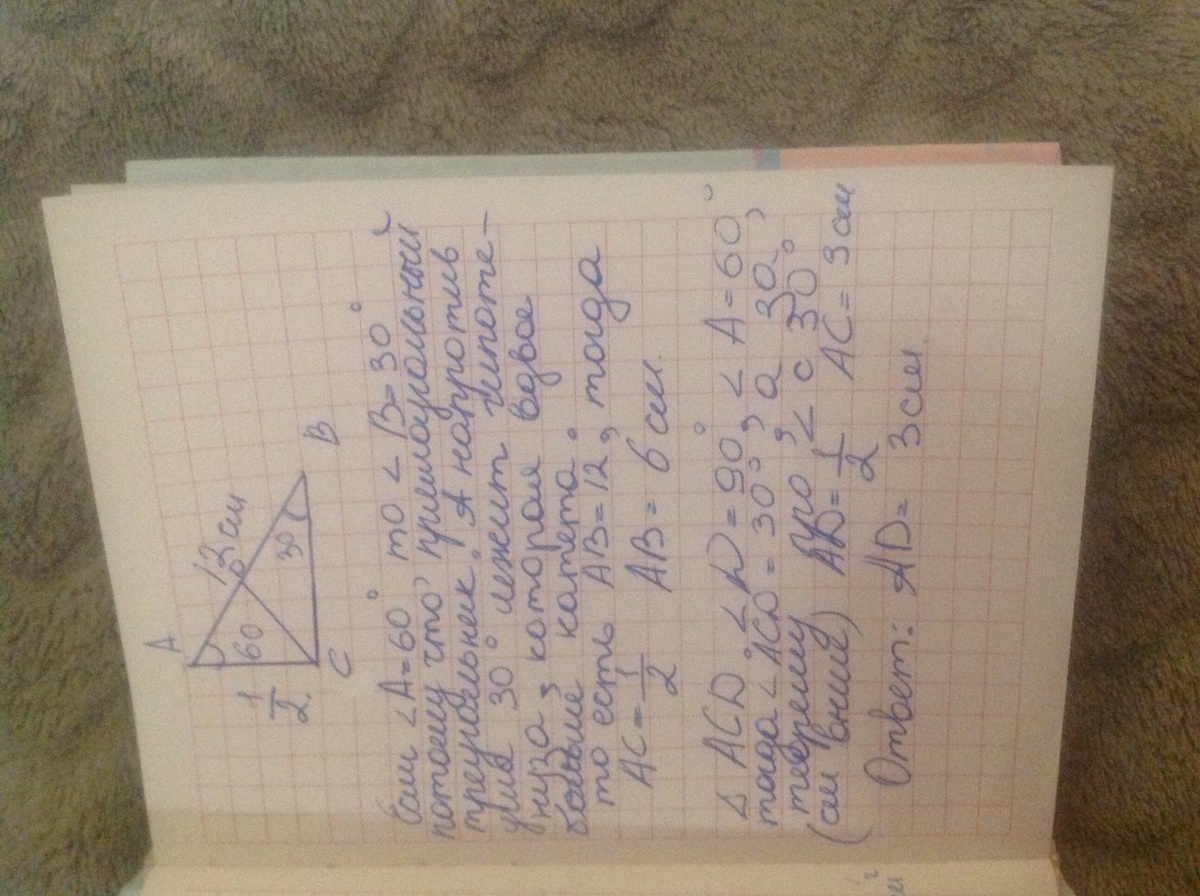 A
12 см
D
60
1/2
30
C
B
Если <A=60° то < B=30°
потому что прямоугольный
треугольник. А напротив
угла 30° лежит гипоте-
нуза, которая вдвое
больше катета.
то есть AB=12, тогда
AC=1/2 AB = 6 см.
Δ ACD <D=90°, < A=60°
тогда < ACD = 30°, а за
теорему про < с 30°
(см выше) AD=1/2 AC= 3 см
Ответ: AD= 3 см